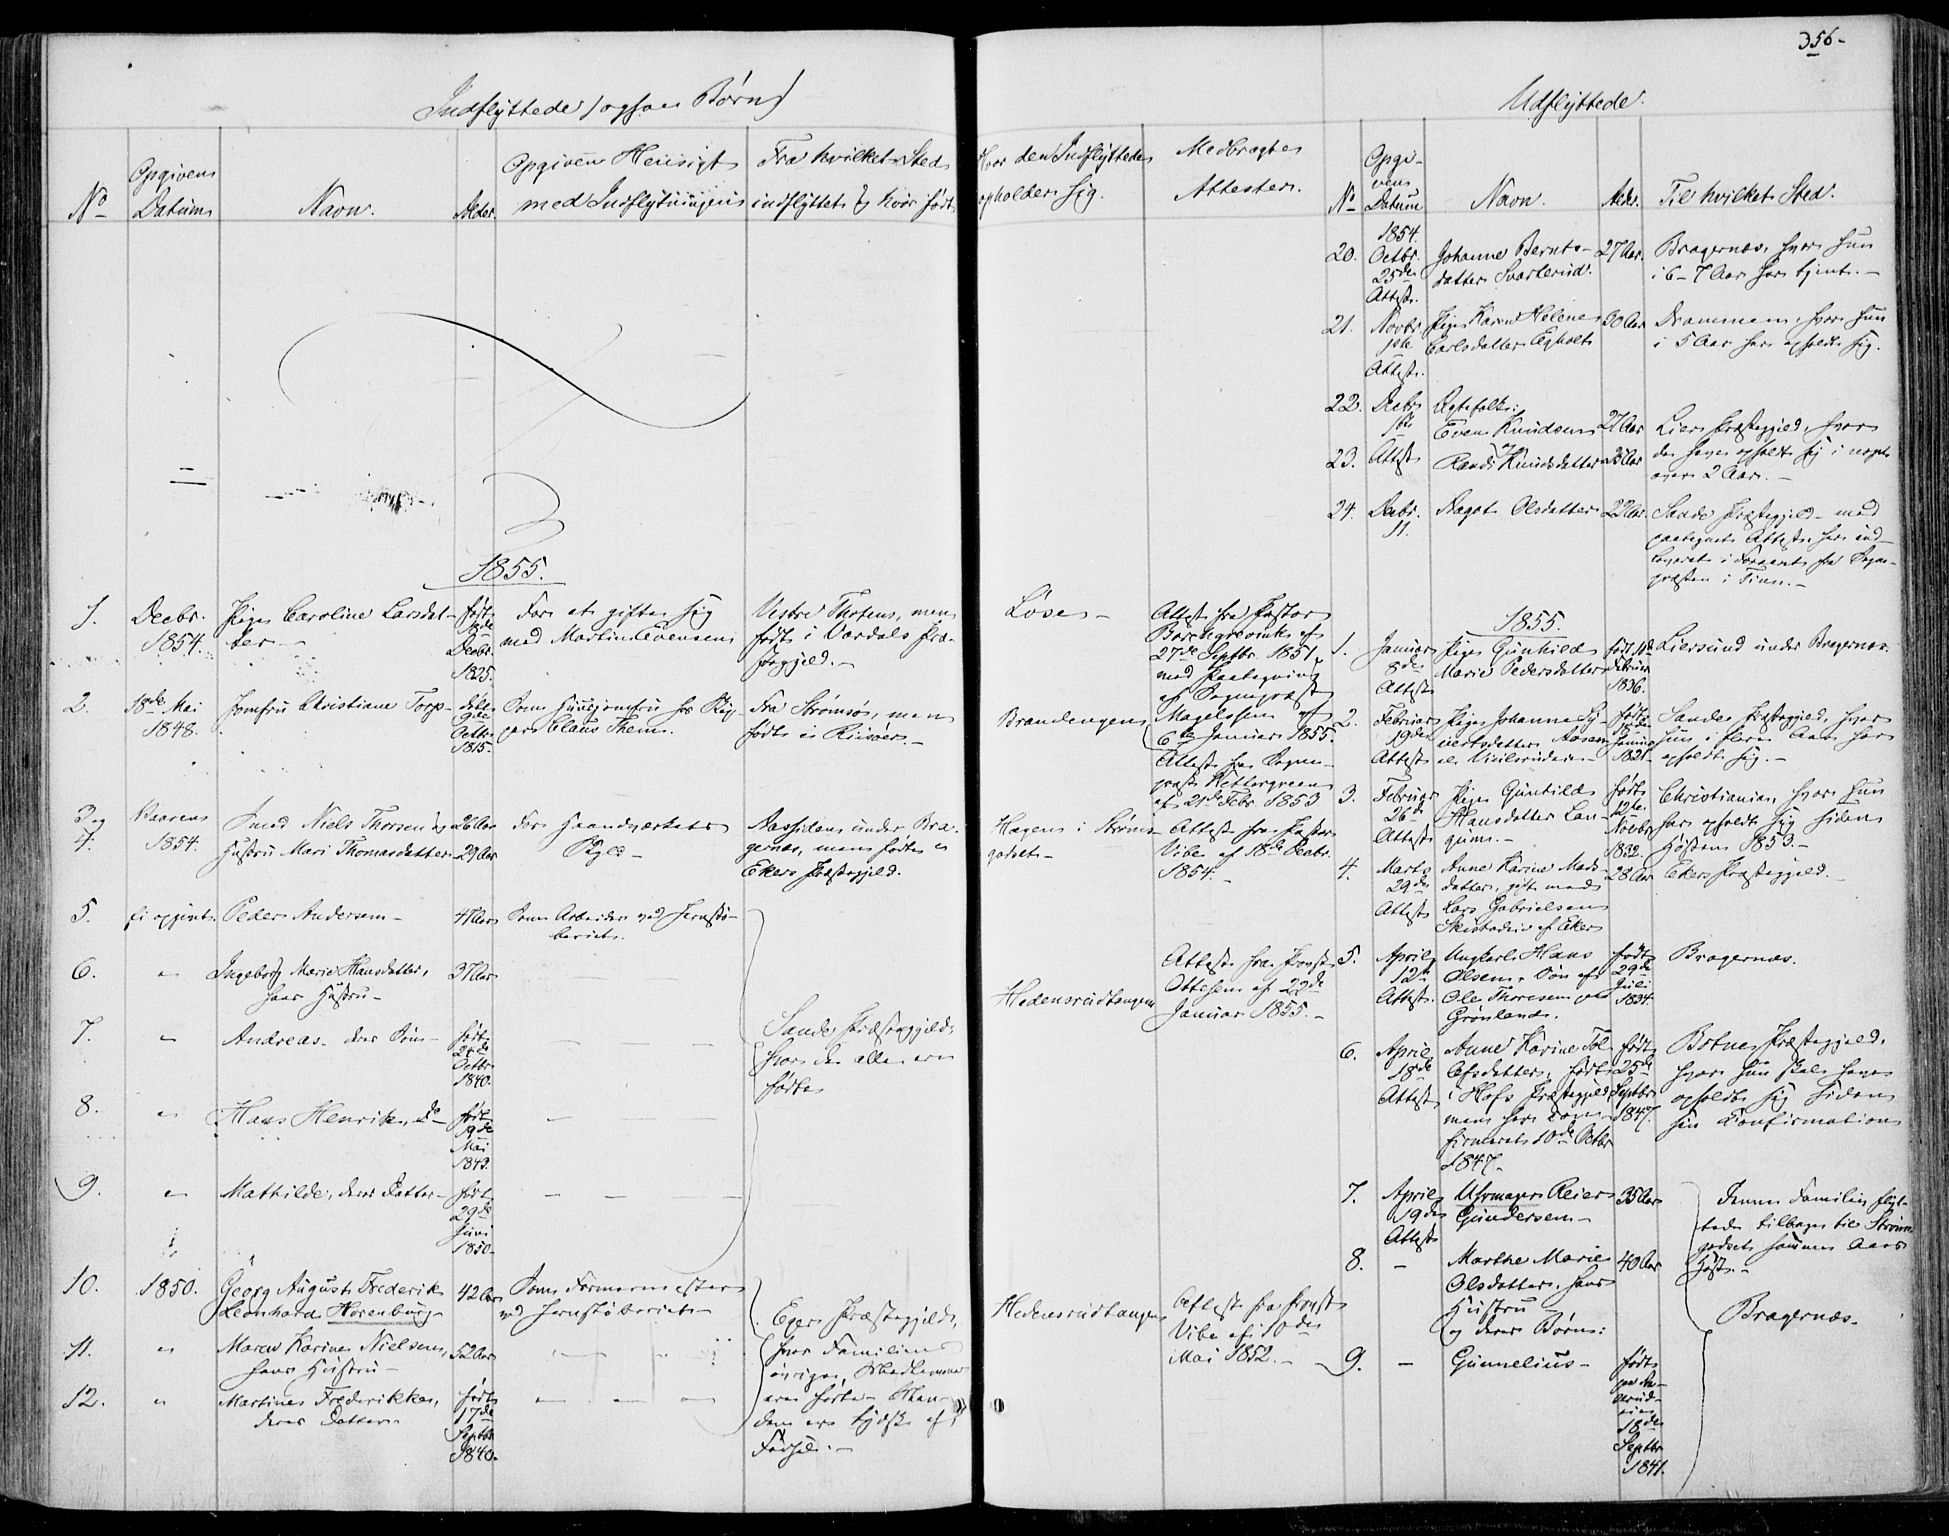 356-
Indflyttede (ogsaa Børn)
No
Opgivens
Datum
Navn.
Alder.
Opgiven Hensigt
med Indflytningen
Fra hvilket Sted
indflyttet & hvor født
Hvor den Indflyttede
opholder sig.
Medbragte
Attester.
1855.
1.
Decbr.
1854.
Pige Caroline Larsdat-
ter
født
18de
Decbr.
1825.
For at gifte sig
med Martin Evensen
Vestre Thoten, men
født i Vardals Præ-
stegjeld.-
Løse-
Attest fra Pastor
27de Septbr. 1851,
med Paategning
af Sognepræst
Magelssen af
6te Januar 1855.
2.
18de Mai
1848.
Jomfru Christiane Torp
født
9de
Octbr.
1815.
Som Huusjomfru hos Skip-
per Claus Them.
Fra Strømsø, men
født i Riisøer.-
Brandengen
Attest fra Sogne-
præst
af 21de Febr. 1853
3 og
4.
Vaaren
1854.
Smed Niels Thorsen og
Hustru Mari Thomasdatter
26 Aar
29 Aar
For Haandværkets
Skyld-
Aassiden under Bra-
gernæs, men født i
Ekers Præstegjeld.
Hagen i Strøms-
godset-
Attest fra Pastor
Vibe af 18de Decbr.
1854.-
5.
Ei opgivet.
Peder Andersen-
47 Aar
Som Arbeider ved Jernstø-
beriet.
6.
"
Ingeborg Marie Hansdatter,
hans Hustru-
37 Aar
Sande Præstegjeld,
hvor de alle ere
fødte
Hedensrudtangen
Attest fra Provst
Ottesen af 22de
Januar 1855.-
7.
"
Andreas- deres Søn-
født
24de
Octbr.
1840.
8.
"
Hans Henrik, do-
født
19de
Mai
1843.
9.
"
Mathilde, deres Datter-
født
29de
Juni
1850-
10.
1850.
Georg August Frederik
Leonhard Horenburg-
42 Aar
Som Formermester
ved Jernstøberiet-
Egers Præstegjeld,
hvor Familiens
øvrige Medlemmer
ere fødte- Man-
den er tydsk af
Fødsel.-
Hedensrudtangen
Attest fra Provst
Vibe af 10de
Mai 1852.-
11.
"
Maren Karine Nielsen,
hans Hustru-
52 Aar
12.
"
Martine Frederikke,
deres Datter-
født
17de
Septbr
1840.
Udflyttede.
No
Opgi-
vens
Datum
Navn.
Alder.
Til hvilket Sted.
1854.
20.
Octbr.
25de
Attest.
Johanne Bernts-
datter Svarterud.
27 Aar.
Bragernæs, hvor hun
i 6-7 Aar har tjent.-
21.
Novbr.
1ste
Attest.
Pige Karen Helene
Carlsdatter Egholt
30 Aar
Drammen, hvor hun
i 5 Aar har opholdt sig.
22.
Decbr
1ste
Attest
Ægtefolk:
Even Knudsen
27 Aar
Liers Præstegjeld, hvor
de have opholdt sig i noget
over 2 Aar.-
23.
og
Randi Knudsdatter
25 Aar
24.
Decbr.
11.
Aagot Olsdatter
22 Aar.
Sande Præstegjeld- med
paategnet Attest fra
præsten i Tinn.-
1855
1.
Januar
8de
Attest
Pige Gunhild
Marie Pedersdatter
født
Februar
1836.
Liersund under Bragernæs
2.
Februar
19de
Attest
Pige Johanne Sy-
vertsdatter Aasen
født
18de
Januar
1821.
Sande Præstegjeld, hvor
hun i flere Aar har
opholdt sig.-
3.
Februar
26de
Attest
Pige Gunhild
Hansdatter Lan-
gum.-
født
12te
Novbr
1832.
Christiania, hvor hun
har opholdt sig siden
Høsten 1853.-
4.
Marts
29de
Attest
Anne Karine Mads-
datter, gift med
Lars Gabrielsen
af Eker
28 Aar
Ekers Præstegjeld.-
5.
April
12te
Attest.
Ungkarl Hans
Olsen, Søn af
Ole Thoresen paa
Grønland.
født
29de
Juli
1834.
Bragernæs.
6.
April
18de
Attest
Anne Karine Tol-
lefsdatter, født
i Hofs Præstegjeld
men her con-
firmeret 10de Octbr
1847-
født
25de
Septbr
1847.
Botne Præstegjeld,
hvor hun skal have
opholdt sig siden
sin Confirmation
7.
April
19de
Attest
Uhrmager Reier
Gundersen-
35 Aar
Denne Familie flyt-
tede tilbage til Strøms-
godset samme Aars
Høst.-
8.
-
Marthe Marie
Olsdatter, hans
Hustru
og deres Børn:
40 Aar
Bragernæs-
9.
-
Gunnelius-
født
18de
Septbr
1841.